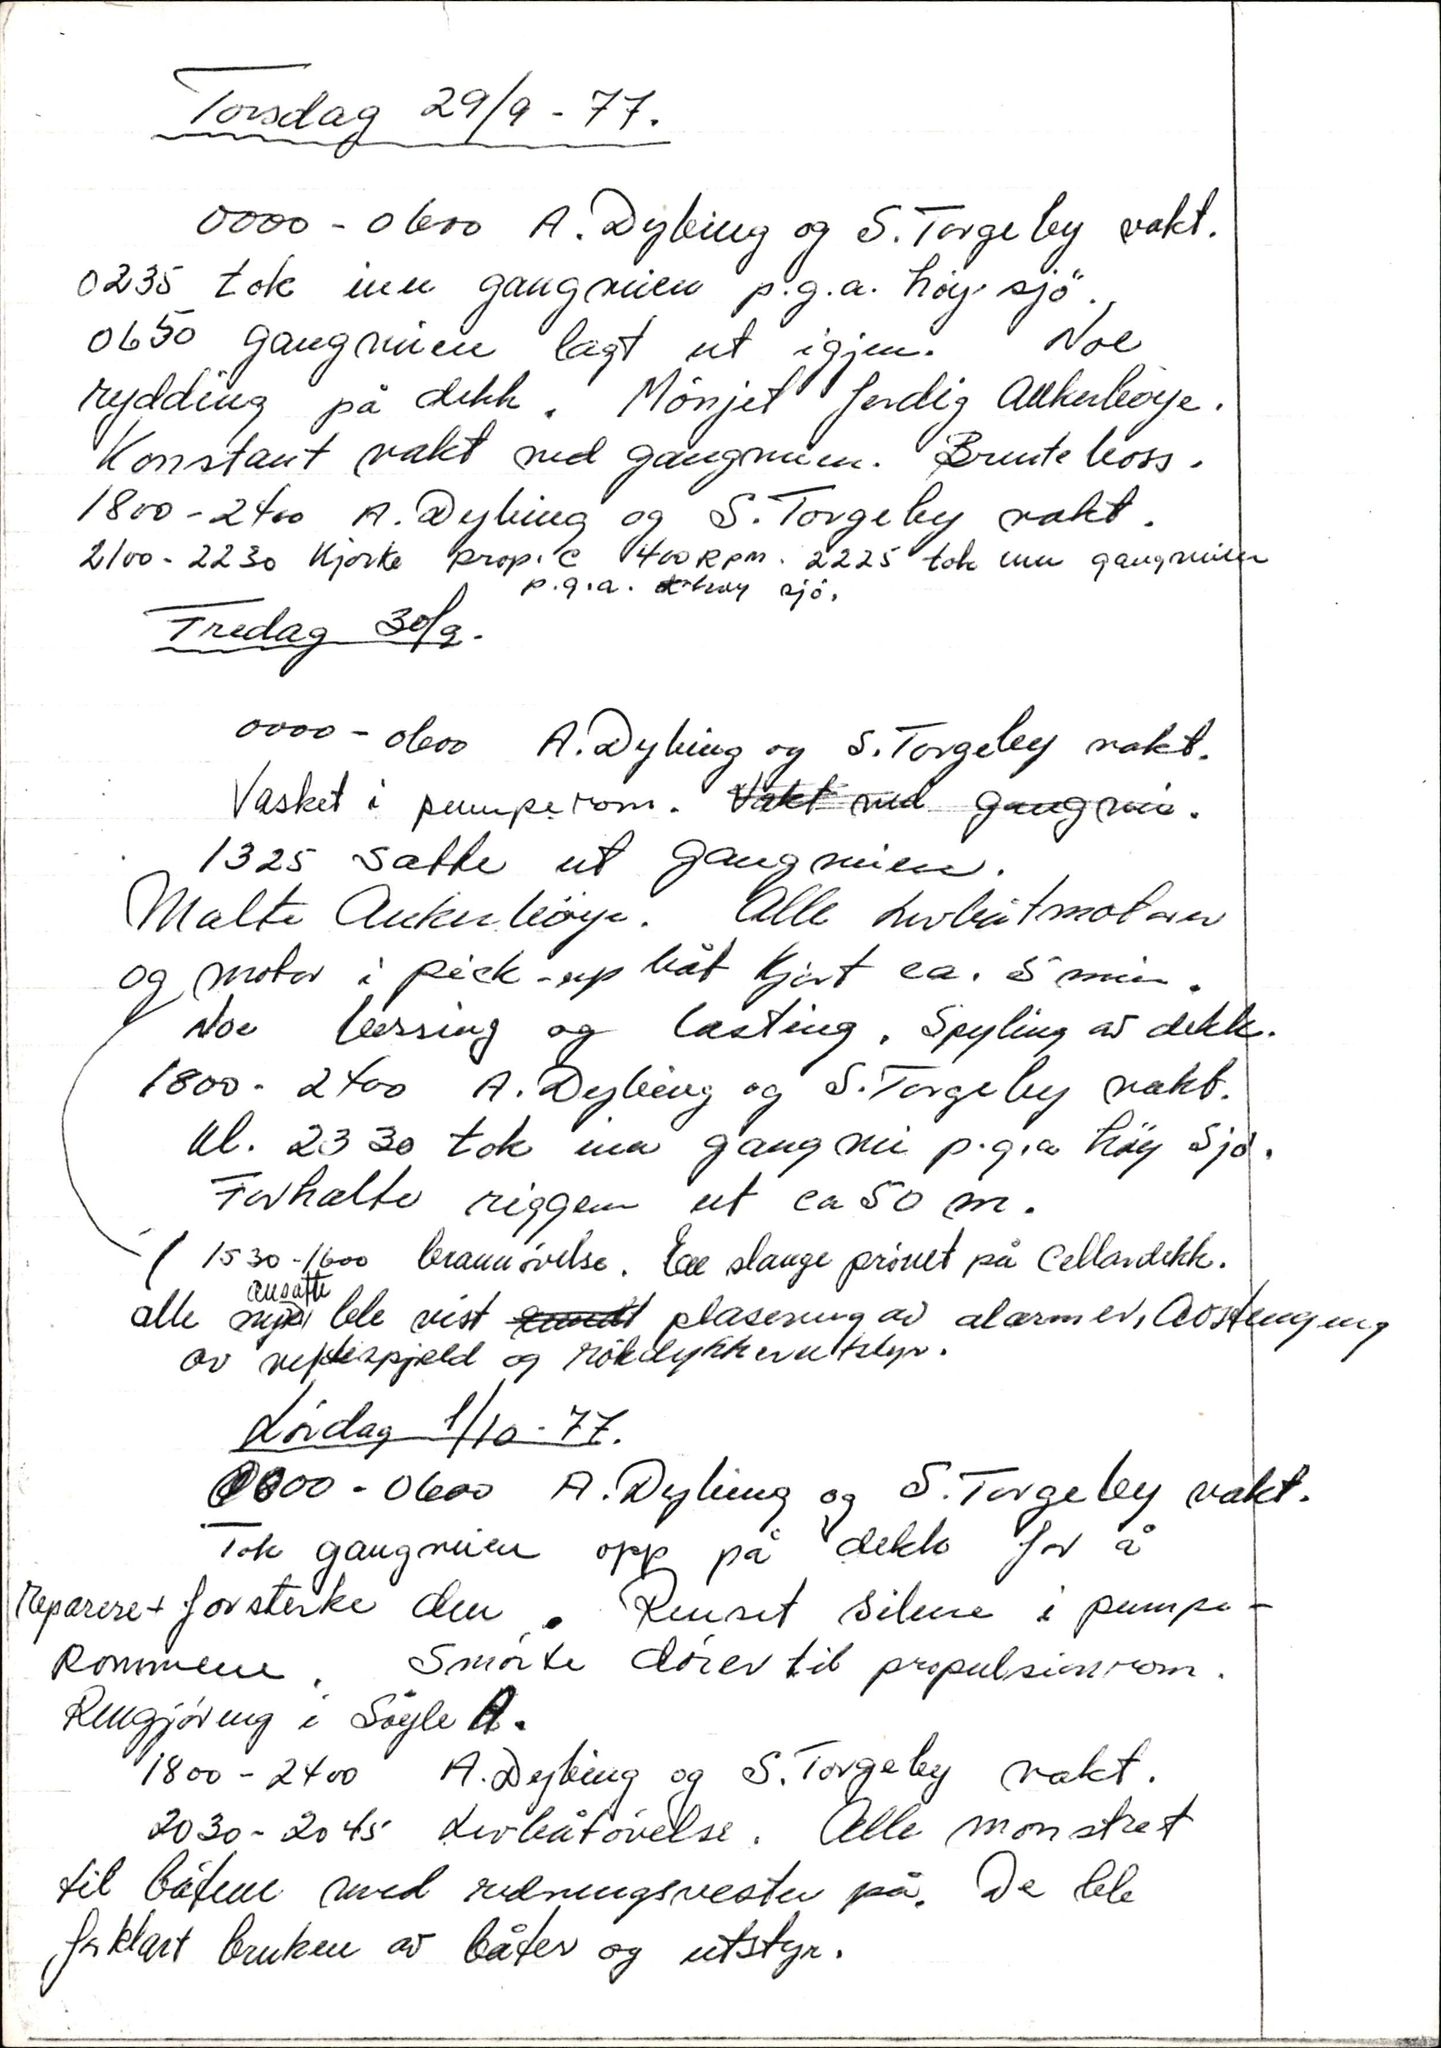 Torsdag 29/9 - 77.
0000 - 0600 A. Dybing og S. Torgeby vakt.
0235 tok inn gangveien p.g.a. høy sjö.
0650 gangveien lagt ut igjen. Noe
rydding på dekk. Mönjet ferdig Ankerböye.
Konstant vakt ved gangveien. Brente boss.
1800 - 2400 A. Dybing og S. Torgeby vakt.
2100 - 2230 Kjørte prop. C 400 RPM. 2225 tok inn gangveien
p.g.a. høy sjö.
Fredag 30/9.
0000 - 0600 A. Dybing og S. Torgeby vakt.
Vasket i pumperom. Vakt ved gangvei.
1325 satte ut gangveien.
Malte Ankerböye. Alle Livbåtmotorer
og motor i pick-up båt kjørt ca. 5 min.
Noe lossing og lasting. Spyling av dekk.
1800 - 2400 A. Dybing og S. Torgeby vakt.
Kl. 2330 tok inn gangvei p.g.a høy Sjø.
Forhalte riggen ut ca 50 m.
( 1530 - 1600 brannøvelse. En slange prövet på Cellardekk.
ansatte
alle nye ble vist plasering av alarmer, Avstenging
av ventispjeld og rökdykkerutstyr.
Lördag 1/10 - 77.
0000 - 0600 A. Dybing og S. Torgeby vakt.
Tok gangveien opp på dekk for å
reparere + forsterke den. Renset silene i pumpe-
Rommene. Smörte dörer til propulsionrom.
Rengjöring i Söyle A.
1800 - 2400 A. Dybing og S. Torgeby vakt.
2030 - 2045 Livbåtövelse. Alle mønstret
til båtene med redningsvester på. De ble
forklart bruken av båter og utstyr.